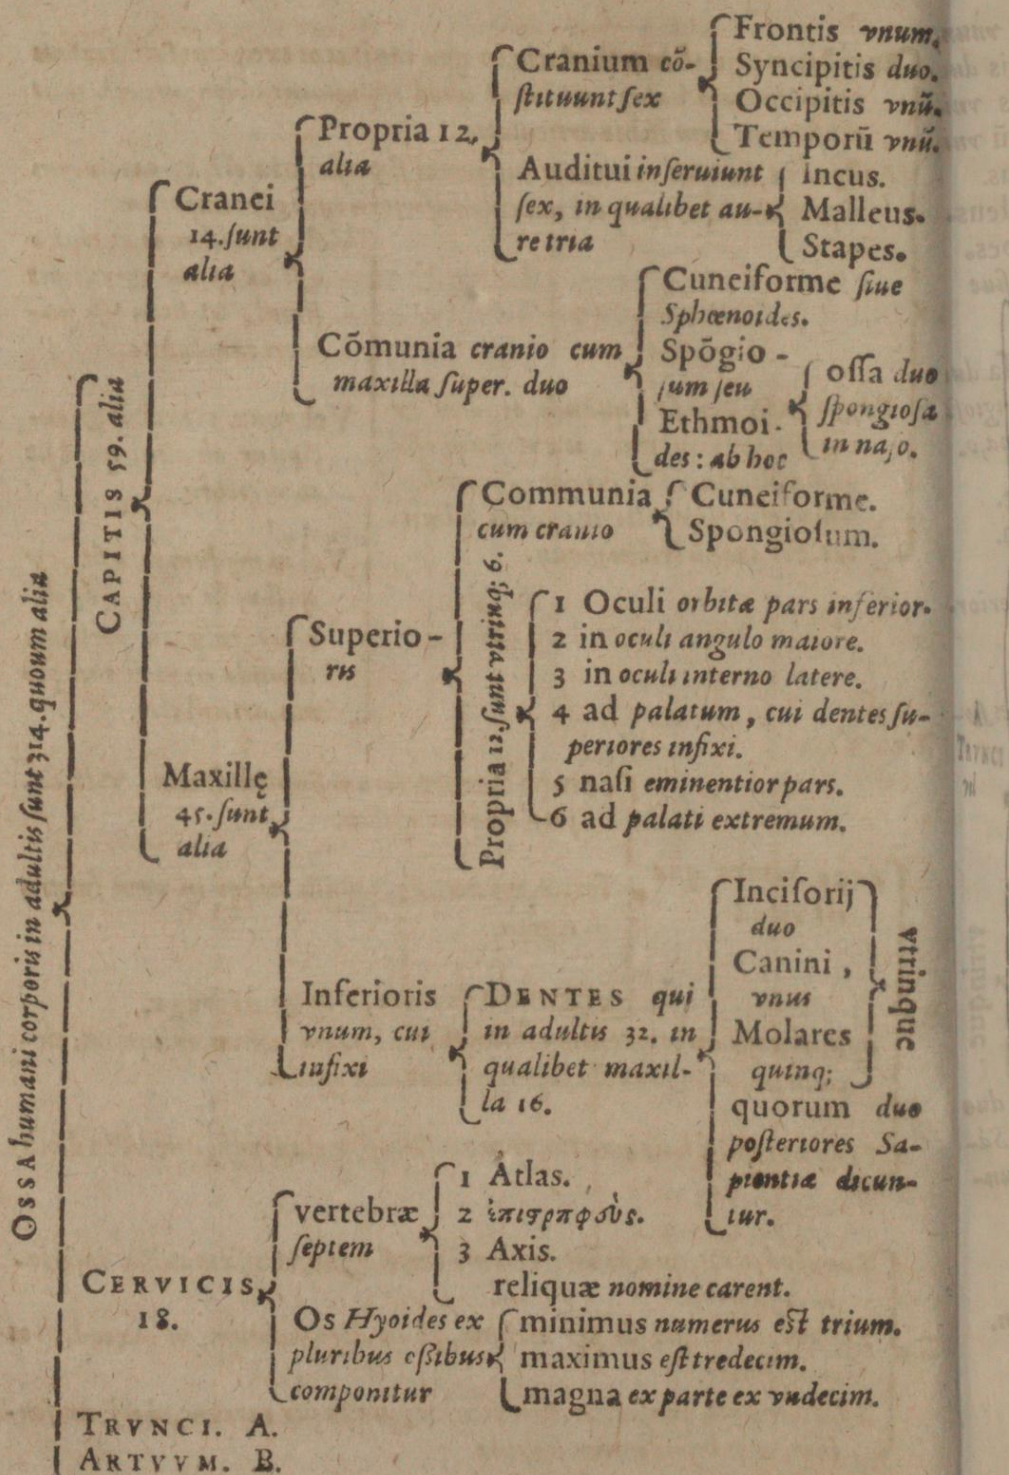 Ossa humani corporis in adultis sunt 314. quoum alia
CAPITIS 59. alia
Cranei
14. sunt
alia
Propria 12.
alia
Cranium cō-
stituunt sex
Frontis vnum.
Syncipitis duo.
Occipitis vnū.
Temporū vnū.
Auditui inseruiunt
sex, in qualibet au-
re tria
Incus.
Malleus.
Stapes.
Cōmunia cranio cum
maxilla super. duo
Cuneiforme siue
Sphœnoides.
Spōgio-
sum seu
Ethmoi-
des: ab hoc
ossa duo
spongiosa
in naso.
Maxillę
45. sunt
alia
Superio-
ris
Communia
cum cranio
Cuneiforme.
Spongiosum.
Propria 12. sunt vtrinq; 6.
1 Oculi orbitæ pars inferior.
2 in oculi angulo maiore.
3 in oculi interno latere.
4 ad palatum, cui dentes su-
periores infixi.
5 nasi eminentior pars.
6 ad palati extremum.
Inferioris
vnum, cui
infixi
DENTES qui
in adultis 32. in
qualibet maxil-
la 16.
Incisorij
duo
Canini,
vnus
Molares
quinq;
vtrinque
quorum duo
posteriores Sa-
pientiæ dicun-
tur.
CERVICIS
18.
vertebræ
septem
1 Atlas.
2 ἐπιστρπφοὺς.
3 Axis.
reliquæ nomine carent.
Os Hyoides ex
pluribus ossibus
componitur
minimus numerus est trium.
maximus est tredecim.
magna ex parte ex vndecim.
TRVNCI. A.
ARTVVM. B.